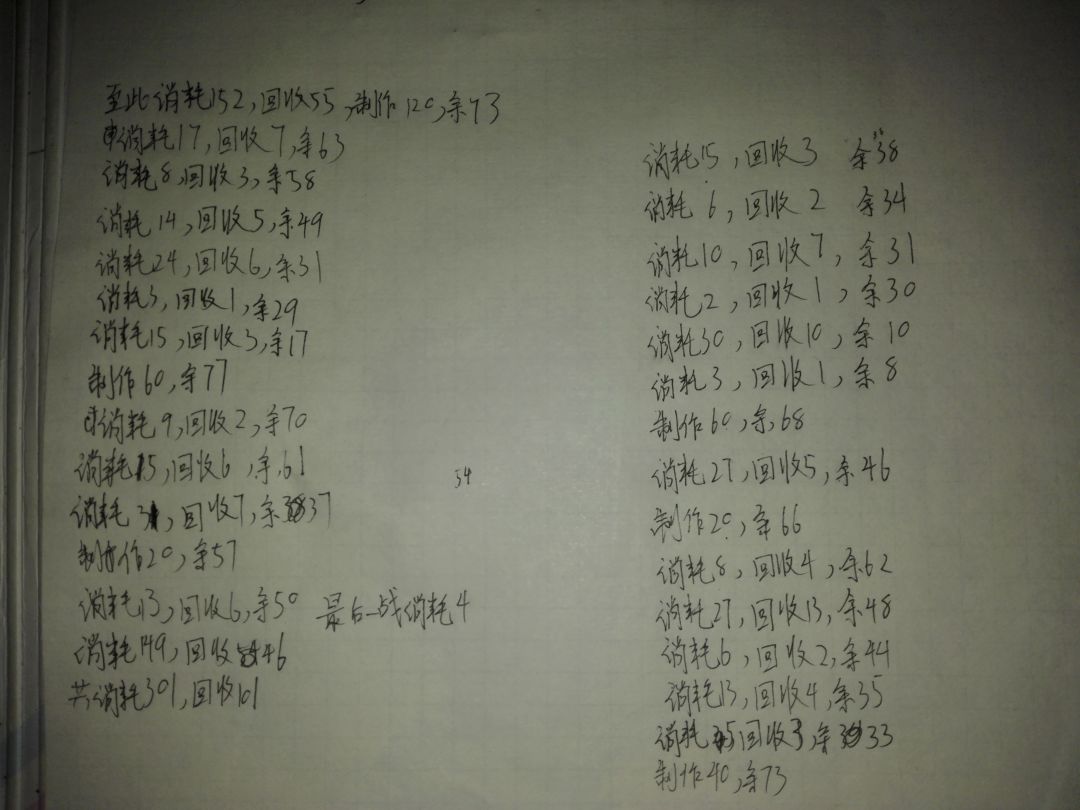 至此消耗152,回收55,制作120,余73
消耗17,回收7,余63
消耗8,回收3,余58
消耗14,回收5,余49
消耗24,回收6,余31
消耗3,回收1,余29
消耗15,回收3,余17
制作60,余77
消耗9,回收2,余70
消耗15,回收6,余61
消耗31,回收7,余37
制作20,余57
消耗13,回收6,余50 最后一战消耗4
消耗149,回收46
共消耗301,回收101
54
消耗15,回收3 余38
消耗6,回收2 余34
消耗10,回收7,余31
消耗2,回收1,余30
消耗30,回收10,余10
消耗3,回收1,余8
制作60,余68
消耗27,回收5,余46
制作20,余66
消耗8,回收4,余62
消耗27,回收13,余48
消耗6,回收2,余44
消耗13,回收4,余35
消耗5回收3,余33
制作40,余73